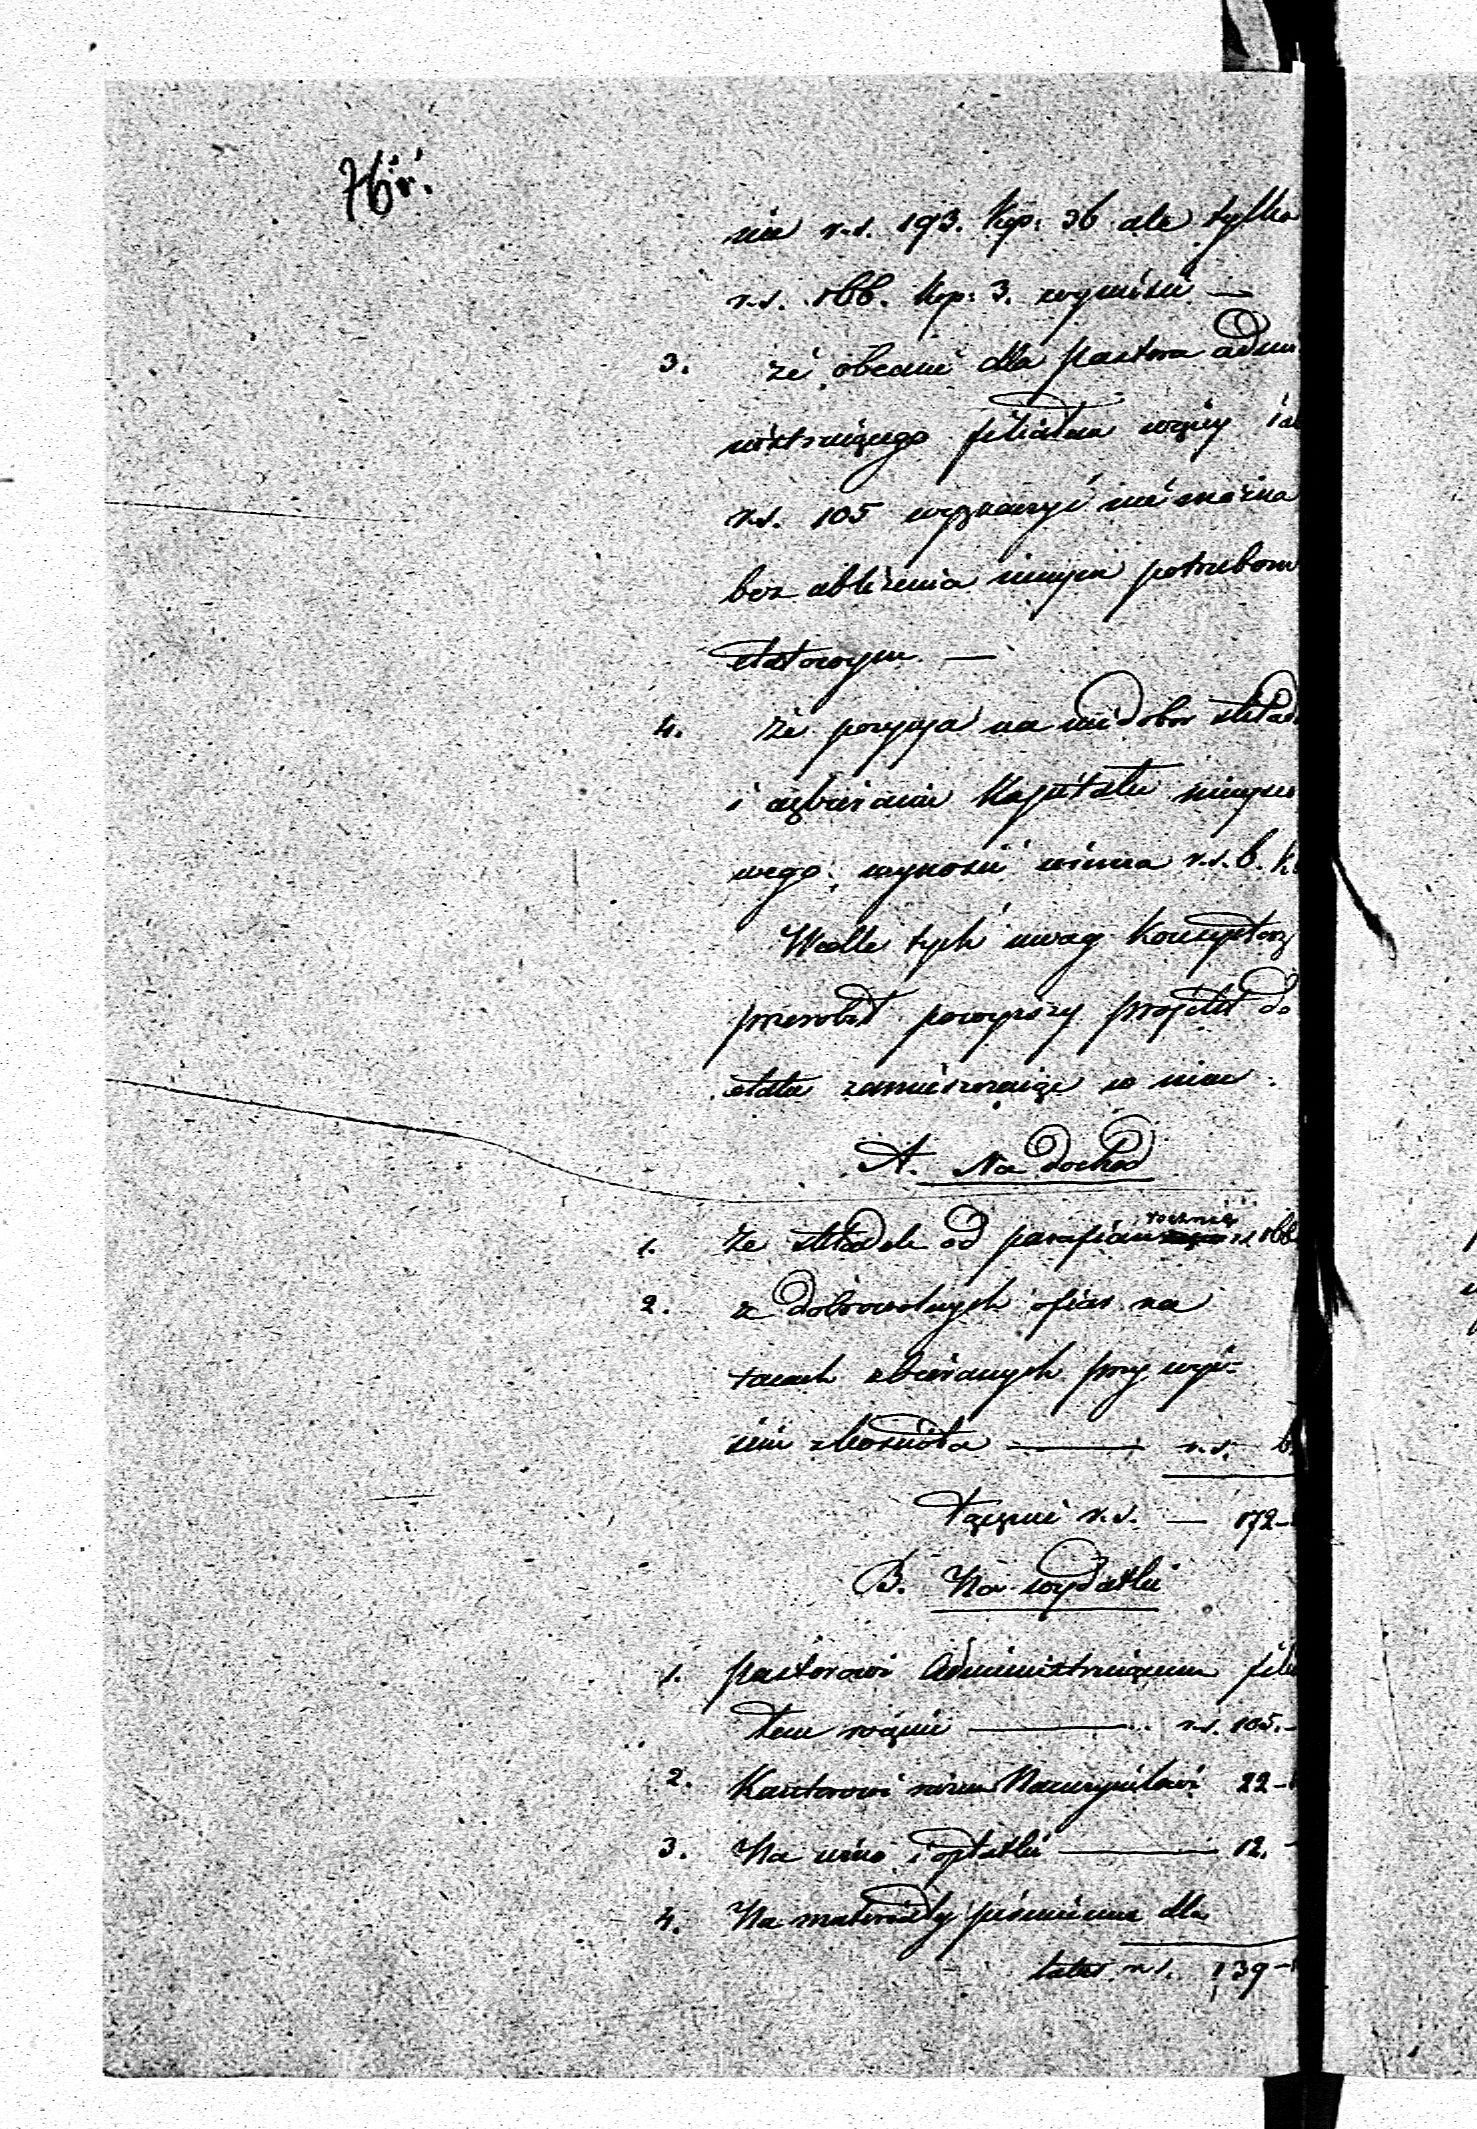 76 v.
nie r.s. 193. kop: 36 ale tylko
r.s. 166. kop: 3. wynosić —
3. że obecnie dla pastora admi
nistrującego filiałem więcej iak
r.s. 105 wyznaczyć nie można
bez ubliżenia innym potrzebom
etatowym. —
4. że pozycya na niedobor składek
i
wego. wynosić winna r.s. 6. k
Wedle tych uwag
przerobił powyższy projekt do
etatu zamieszczając w nim.
A. Na dochod
1. Ze składek od parafian rocznie r.s. 166
2. z dobrowolnych ofiar na
tacach zbieranych przy wyj-
ściu z kościoła — r.s. 6
Łącznie r.s. — 172-
B. Na wydatki
1. pastorowi Administrującemu filia
łem rocznie — r.s. 105.-
2. Kantorowi zarazem Nauczycielowi 22-
3. Na wino i opłatki — 12.-
4. Na materiały piśmienne dla
latus r.s. 139-